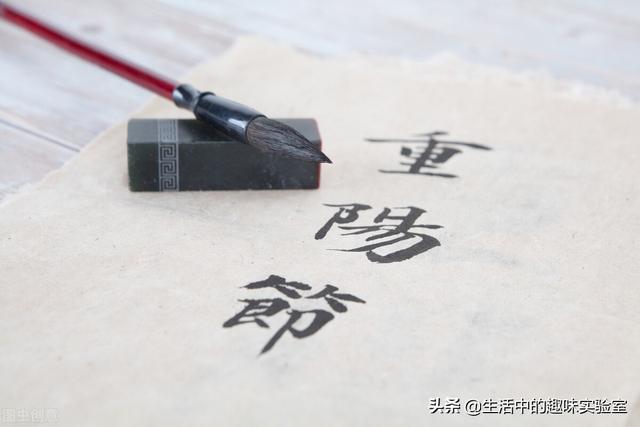 重陽節
头条 @生活中的趣味实验室
图虫创意